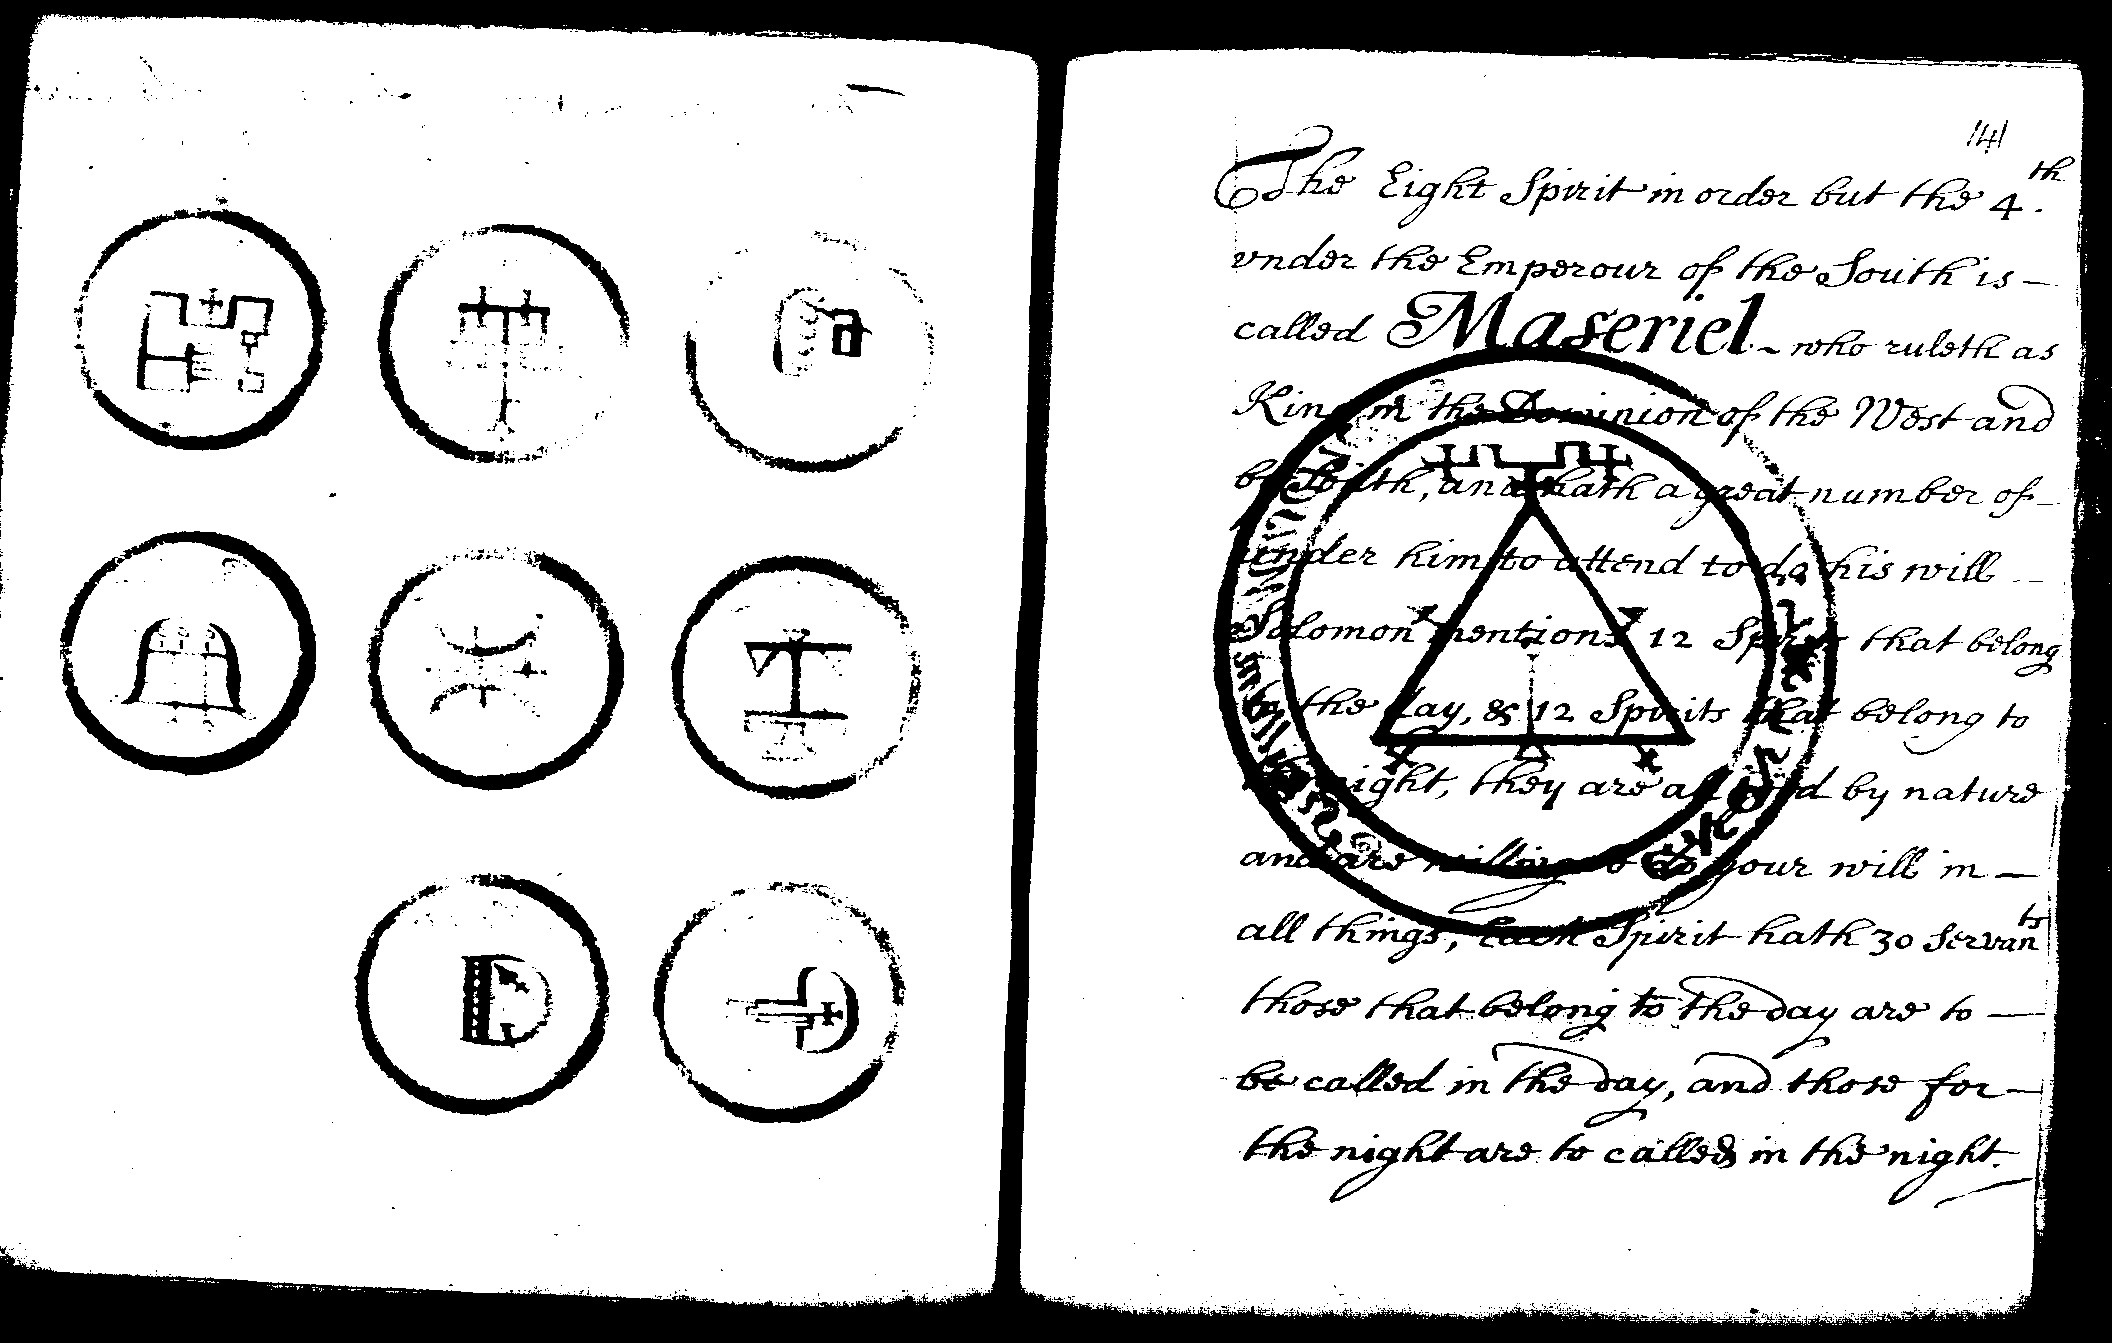 141
The Eight Spirit in order but the 4th.
vnder the Emperour of the South is —
called Maseriel - who ruleth as
King in the Dominion of the West and
by South, and hath a great number of -
vnder him to attend to do his will --
Solomon mentions 12 Spirits that belong
to the day, & 12 Spirits that belong to
night, they are all good by nature
and are willing to do your will in —
all things, Each Spirit hath 30 Servants
those that belong to the day are to —
be called in the day, and those for —
the night are to called in the night.